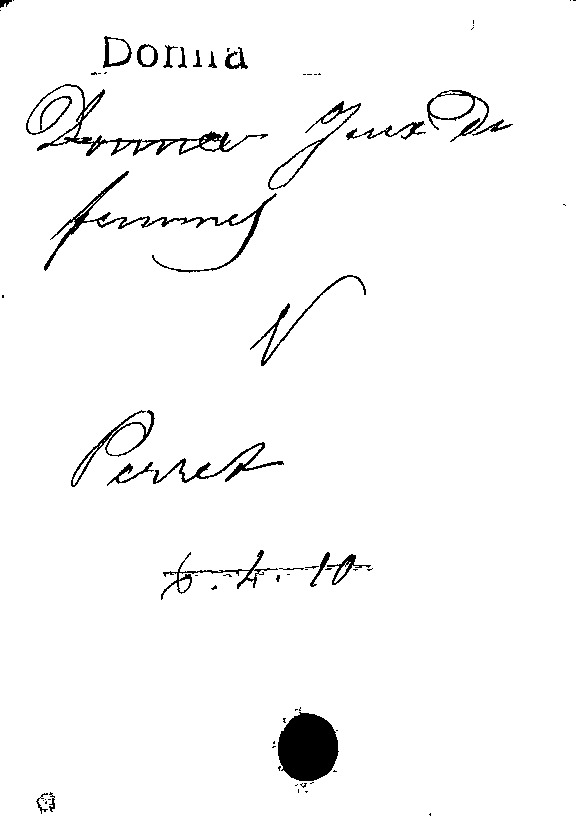 Donna
Donna Jeux de
femmes
V
Perret
6.4.10